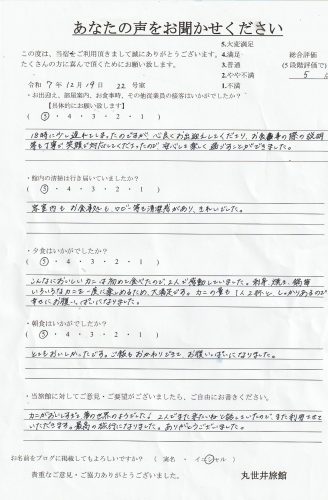 あなたの声をお聞かせください
この度は、当宿をご利用頂きまして誠にありがとうございます。
たくさんの方に喜んで頂くためにお願い致します。
5.大変満足
4.満足
3.普通
2.やや不満
1.不満
総合評価
(5段階評価で)
5
令和 7年 12月 19日 22号室
・お出迎え、部屋案内、お食事時、その他従業員の接客はいかがでしたか?
【具体的にお願い致します】
( 5 ・ 4 ・ 3 ・ 2 ・ 1 )
18時に少し遅れてしまったのですが、心良くお出迎えしてくださり、お食事の際の説明
等も丁寧に笑顔で対応してくださったので、安心して楽しく過ごすことができました。
・館内の清掃は行き届いていましたか?
( 5 ・ 4 ・ 3 ・ 2 ・ 1 )
客室内もお食事処もロビー等も清潔感があり、きれいでした。
・夕食はいかがでしたか?
( 5 ・ 4 ・ 3 ・ 2 ・ 1 )
こんなにおいしいカニは初めて食べたので2人で感動していました。刺身、焼き、鍋等
いろいろなカニを一度に楽しめるため、大満足です。カニの量も1人2杯と、しっかりあるので
幸せにお腹いっぱいになりました。
・朝食はいかがでしたか?
( 5 ・ 4 ・ 3 ・ 2 ・ 1 )
とてもおいしかったです。ご飯もおかわりできて、お腹いっぱいになりました。
・当旅館に対してご意見・ご要望がございましたら、ご自由にお書きください。
カニがおいしすぎて夢の世界のようでした! 2人でまた来たいねと話していたので、また利用させて
いただきます。最高の旅行になりました。ありがとうございました。
お名前をブログに掲載してもよろしいですか? ( 実名 ・ イニシャル )
貴重なご意見・ご協力ありがとうございました。
丸世井旅館